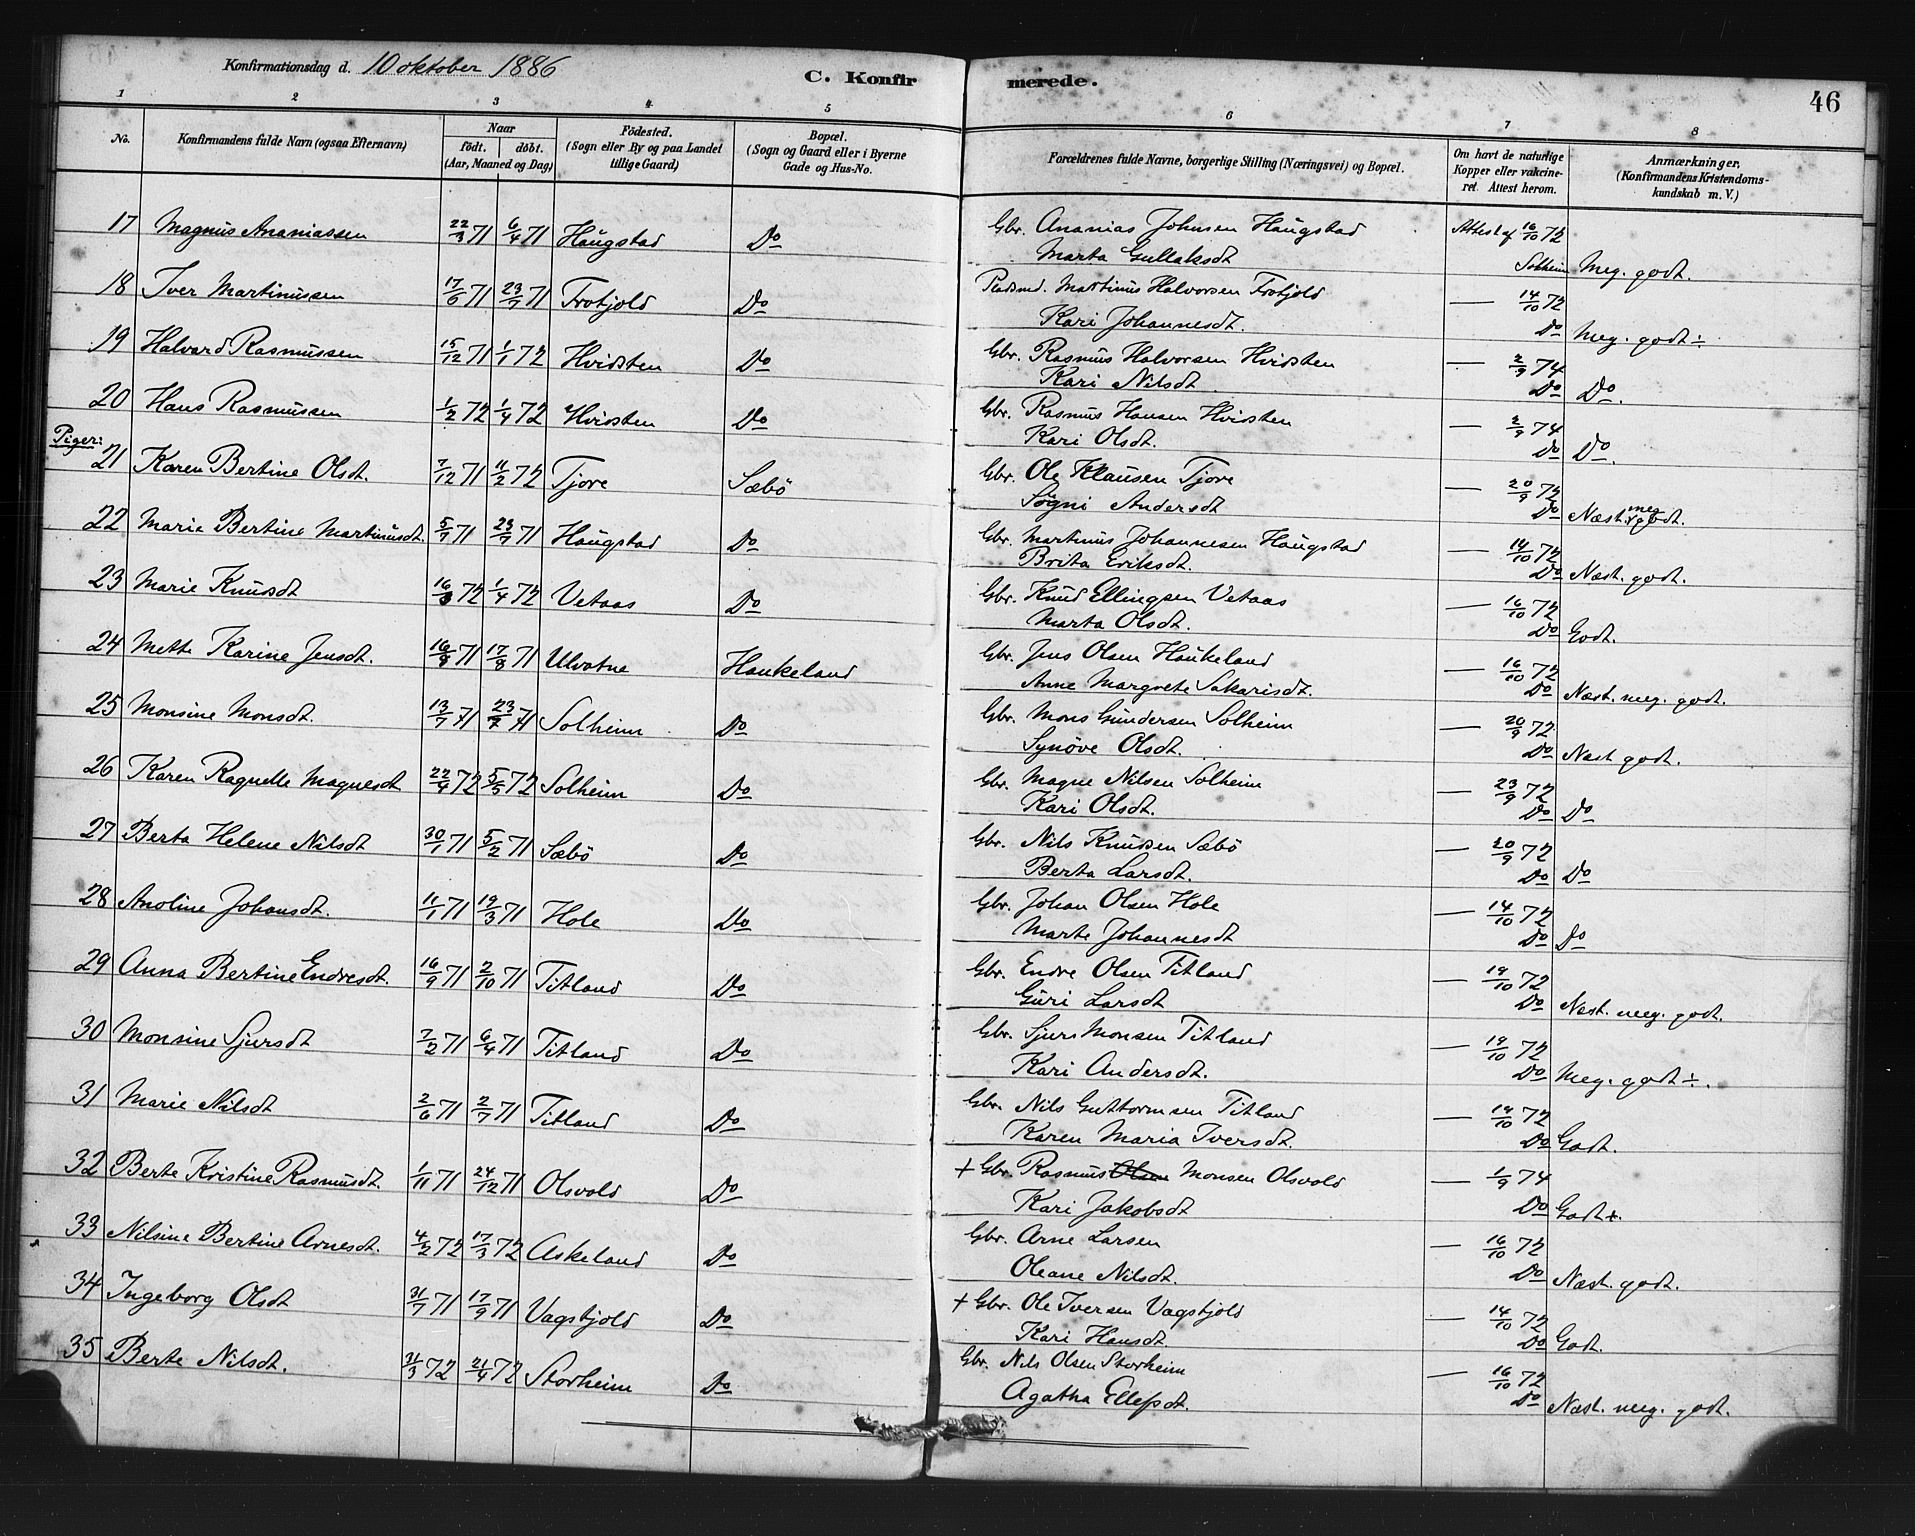 Konfirmationsdag d. 10 oktober 1886 C. Konfirmerede. 46
1 2 3 4 5 6 7 8
No. Konfirmandens fulde Navn (ogsaa Efternavn) Naar født. døbt. (Aar, Maaned og Dag) Födested. (Sogn eller By og paa Landet tillige Gaard) Bopæl. (Sogn og Gaard eller i Byerne Gade og Hus-No. Forældrenes fulde Navne, borgerlige Stilling (Næringsvei) og Bopæl. Om havt de naturlige Kopper eller vakcineret. Attest herom. Anmærkninger, (Konfirmandens Kristendomskundskab m. V.)
17 Magnus Ananiassen 22/3 71 6/4 71 Haugstad Do Gbr. Ananias Johnsen Haugstad Attest af 16/10 72
Marta Gullaksdt Solheim Meg. godt.
18 Iver Martinussen 17/6 71 23/7 71 Frotjold Do Pladsmd. Martinus Halvorsen Frotjold — 14/10 72
Kari Johannesdt. Do Meg. godt ÷
19 Halvard Rasmussen 15/12 71 1/1 72 Hvidsten Do Gbr. Rasmus Halvorsen Hvidsten — 2/9 74
Kari Nilsdt Do Do.
20 Hans Rasmussen 1/2 72 1/4 72 Hvidsten Do Gbr. Rasmus Hansen Hvidsten — 2/9 74
Kari Olsdt. Do Do.
Piger:
21 Karen Bertine Olsdt. 7/12 71 11/2 72 Tjore Sæbö Gbr. Ole Klausen Tjore — 20/9 72
Sögni Andersdt Do Næst. meg godt.
22 Marie Bertine Martinusdt. 5/7 71 23/7 71 Haugstad Do Gbr. Martinus Johannesen Haugstad — 14/10 72
Brita Eriksdt. Do Næst. godt.
23 Marie Knudsdt 16/3 72 1/4 72 Vetaas Do Gbr. Knud Ellingsen Vetaas — 16/10 72
Marta Olsdt. Do Godt.
24 Mette Karine Jensdt. 16/8 71 17/8 71 Ulvatne Haukeland Gbr. Jens Olsen Haukeland — 16/10 72
Anne Margrete Sakarisdt. Do Næst. meg. godt.
25 Monsine Monsdt. 13/7 71 23/7 71 Solheim Do Gbr. Mons Gundersen Solheim — 20/9 72
Synöve Olsdt. Do Næst godt.
26 Karen Ragnelle Magnesdt 22/4 72 5/5 72 Solheim Do Gbr. Magne Nilsen Solheim — 23/9 72
Kari Olsdt. Do Do
27 Berta Helene Nilsdt 30/1 71 5/2 71 Sæbö Do Gbr. Nils Knudsen Sæbö — 20/9 72
Berta Larsdt. Do Do
28 Anoline Johansdt. 11/1 71 19/3 71 Hole Do Gbr. Johan Olsen Hole — 14/10 72
Marte Johannesdt Do Do
29 Anna Bertine Endresdt. 16/9 71 2/10 71 Titland Do Gbr. Endre Olsen Titland — 14/10 72
Guri Larsdt Do Næst. meg. godt.
30 Monsine Sjursdt 7/2 71 6/4 71 Titland Do Gbr. Sjurs Monsen Titland — 14/10 72
Kari Andersdt. Do Meg. godt ÷.
31 Marie Nilsdt 2/6 71 2/7 71 Titland Do Gbr. Nils Guttormsen Titland — 14/10 72
Karen Maria Iversdt. Do Godt.
32 Berte Kristine Rasmusdt. 1/11 71 24/12 71 Olsvold Do + Gbr. Rasmus Olsen Monsen Olsvold — 1/9 74
Kari Jakobsdt Do Godt+.
33 Nilsine Bertine Arnesdt. 4/2 72 17/3 72 Askeland Do Gbr. Arne Larsen — 16/10 72
Oleane Nilsdt. Do Næst. godt.
34 Ingeborg Olsdt 31/7 71 17/9 71 Vagstjold Do + Gbr. Ole Iversen Vagstjold — 14/10 72
Kari Hansdt. Do Godt.
35 Berte Nilsdt. 31/3 72 21/4 72 Storheim Do Gbr. Nils Olsen Storheim — 16/10 72
Agatha Ellefsdt. Do Næst. meg. godt.